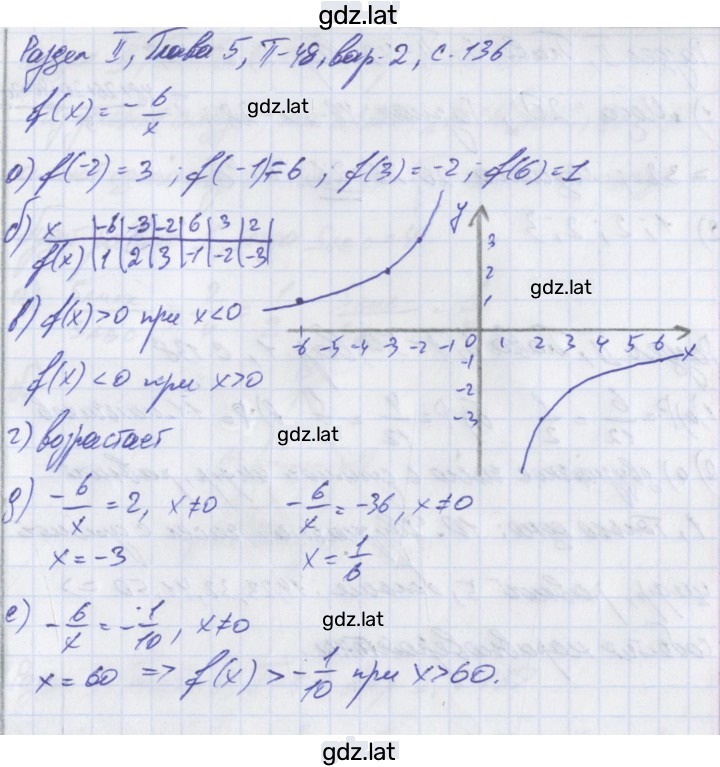 gdz.lat
Раздел II, Глава 5, П-48, вар. 2, с. 136
f(x) = -6/x
gdz.lat
а) f(-2) = 3 ; f(-1) = 6 ; f(3) = -2 ; f(6) = 1
б) x | -6 | -3 | -2 | 6 | 3 | 2
f(x) | 1 | 2 | 3 | -1 | -2 | -3
y
3
2
1
-6 -5 -4 -3 -2 -1 0 1 2 3 4 5 6 x
-1
-2
-3
gdz.lat
в) f(x) > 0 при x < 0
f(x) < 0 при x > 0
г) возрастает
gdz.lat
д) -6/x = 2, x ≠ 0 -6/x = -36, x ≠ 0
x = -3 x = 1/6
е) -6/x = -1/10, x ≠ 0
gdz.lat
x = 60 => f(x) > -1/10 при x > 60.
gdz.lat